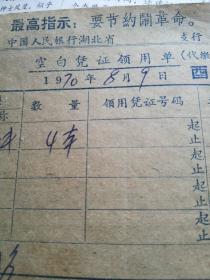 最高指示：要节约闹革命。
中国人民银行湖北省 支行
空白凭证领用单（代缴
1970年8月9日 四
数量 领用凭证号码
4本 起
止
起
止
起
止
起
止